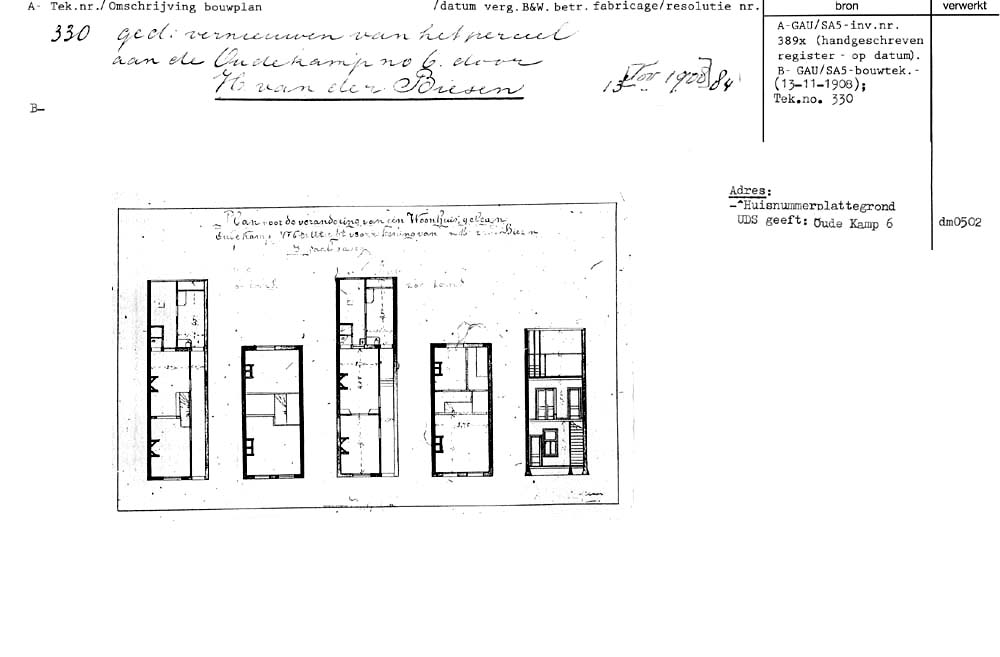 A- Tek.nr./Omschrijving bouwplan /datum verg.B&W. betr. fabricage/resolutie nr.
bron
verwerkt
330 ged: vernieuwen van het perceel
aan de Oudekamp no 6. door
H. van der Biesen
13 Nov 1908 84
B-
A-GAU/SA5-inv.nr.
389x (handgeschreven
register - op datum).
B- GAU/SA5-bouwtek.-
(13-11-1908);
Tek.no. 330
Adres:
-Huisnummerplattegrond
UDS geeft: Oude Kamp 6
dm0502
Plan voor de verandering van een Woonhuis gelegen